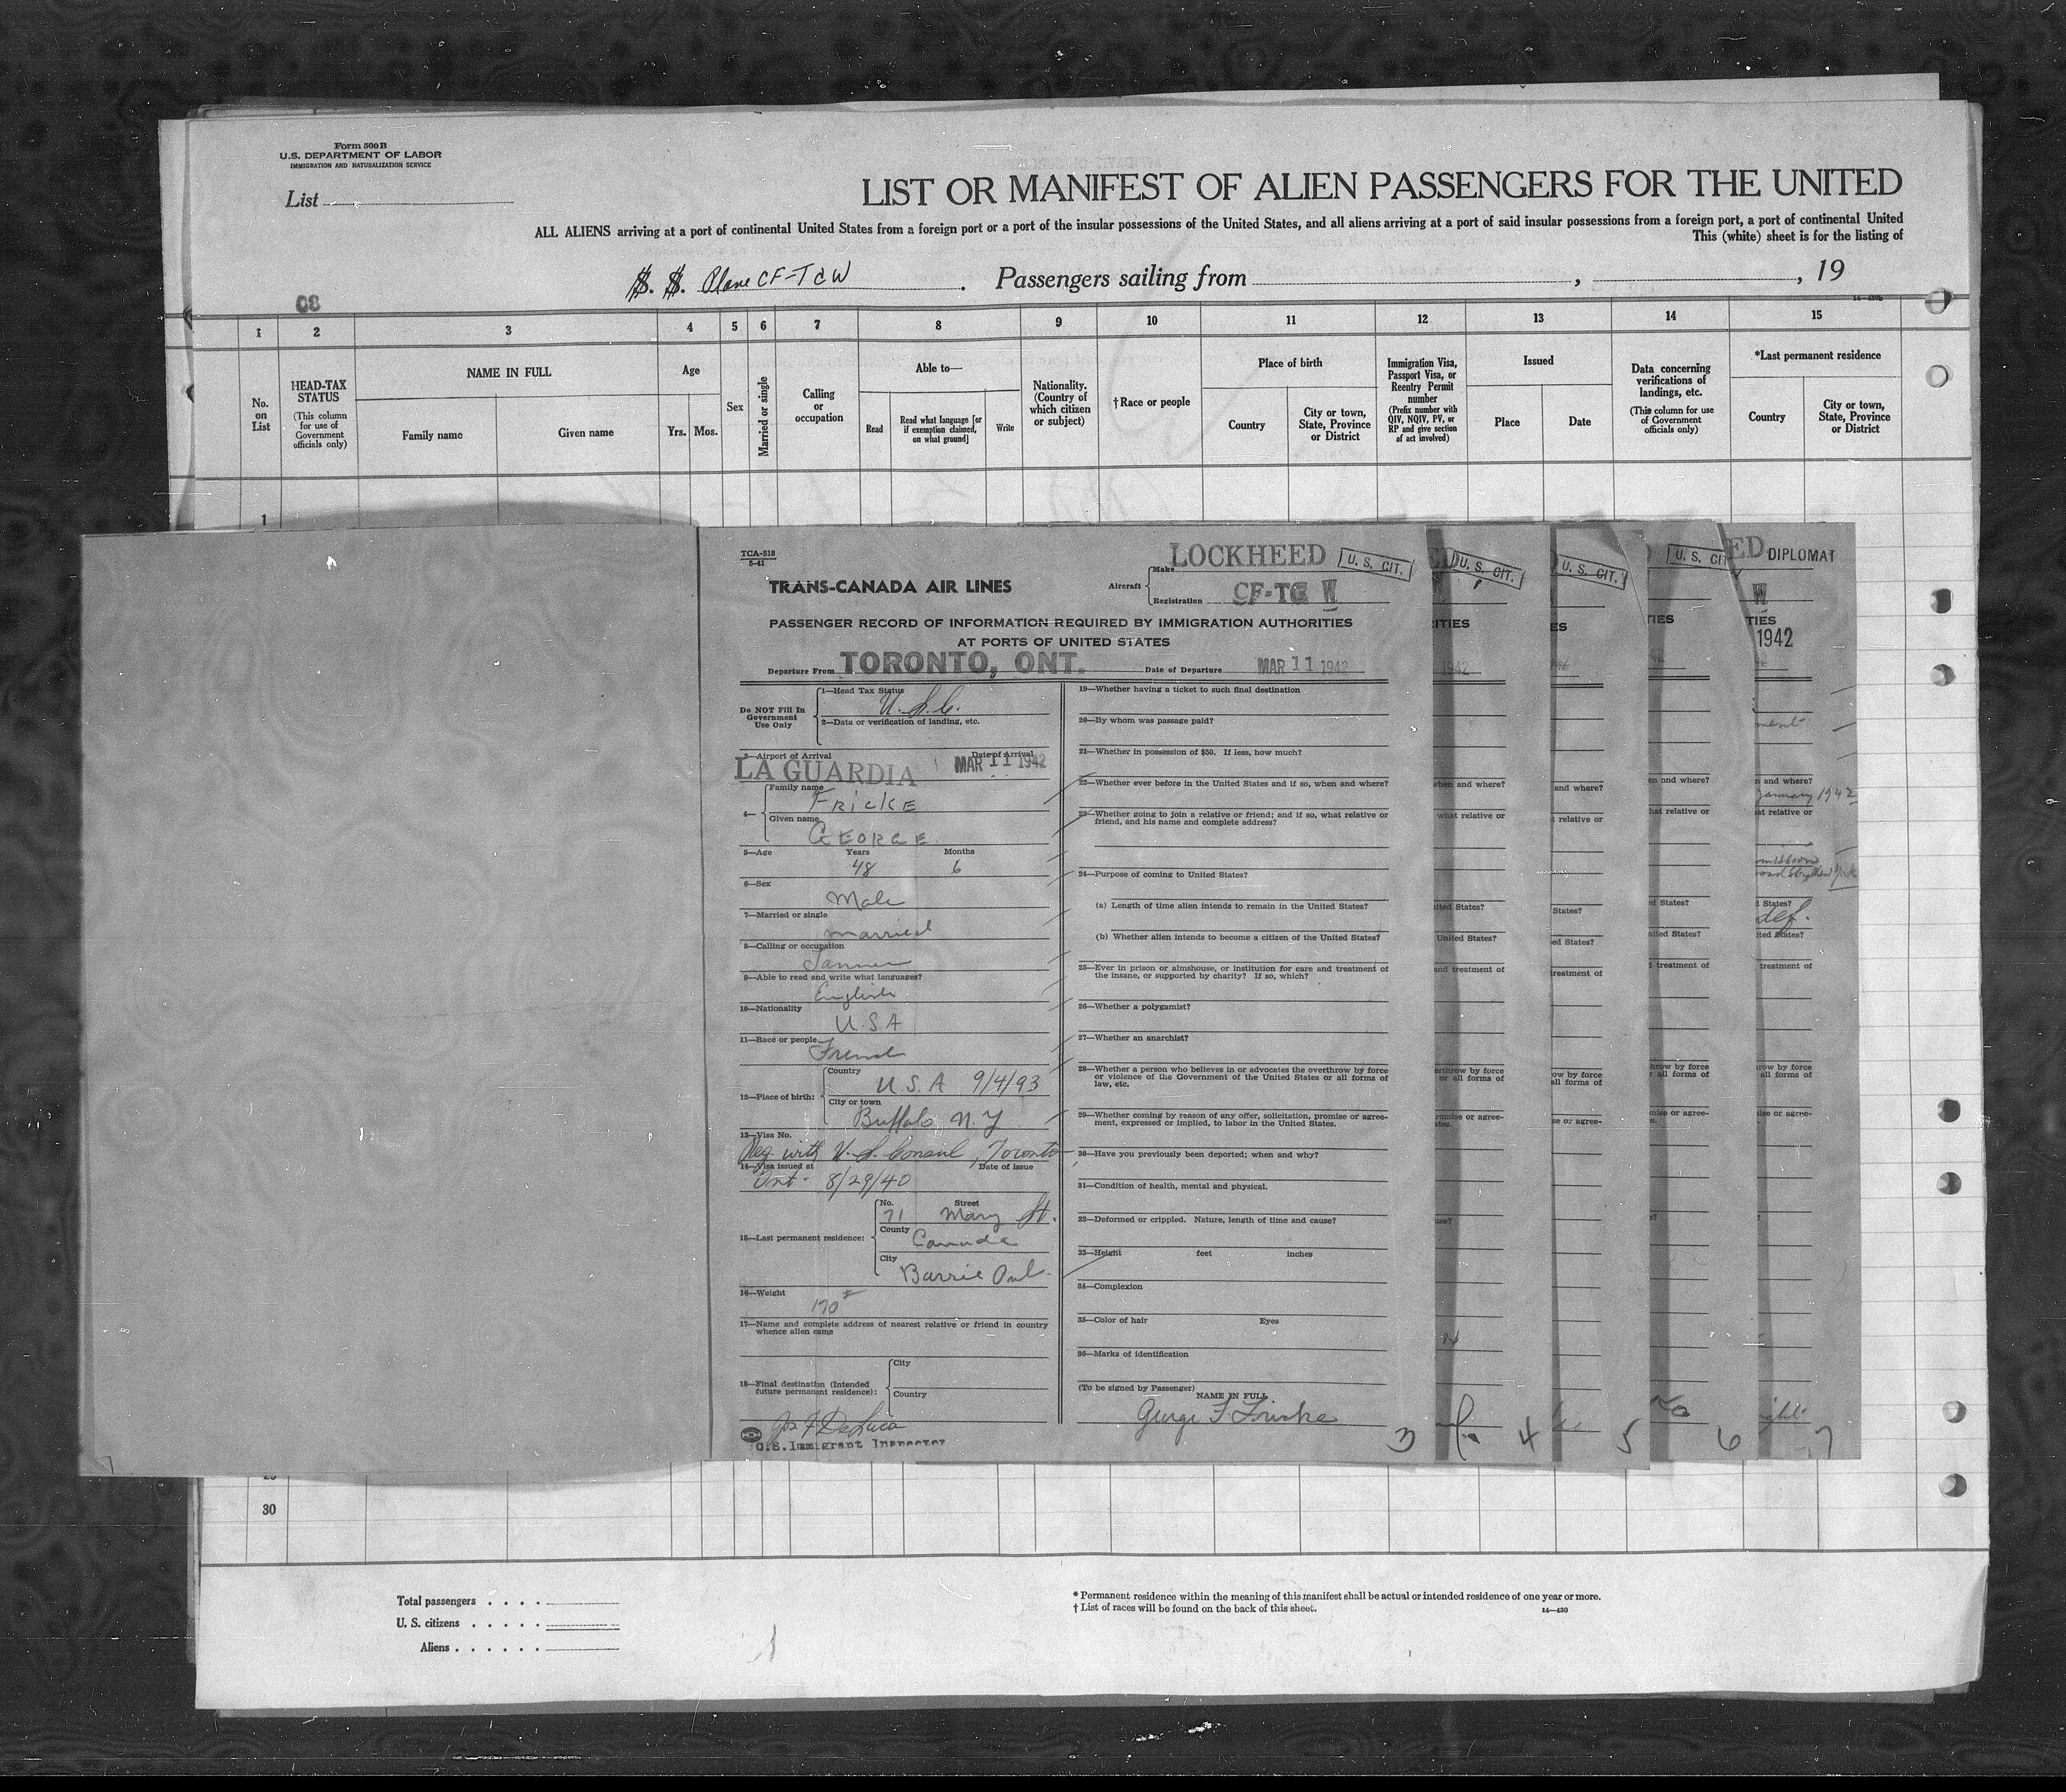 Form 500 B
U.S. DEPARTMENT OF LABOR
IMMIGRATION AND NATURALIZATION SERVICE
List
LIST OR MANIFEST OF ALIEN PASSENGERS FOR THE UNITED
ALL ALIENS arriving at a port of continental United States from a foreign port or a port of the insular possessions of the United States, and all aliens arriving at a port of said insular possessions from a foreign port, a port of continental United
This (white) sheet is for the listing of
S. S. Plane CF-TCW . Passengers sailing from , , 19
08
1 2 3 4 5 6 7 8 9 10 11 12 13 14 15
No. on List
HEAD-TAX STATUS
(This column for use of Government officials only)
NAME IN FULL
Family name
Given name
Age
Yrs. Mos.
Sex
Married or single
Calling or occupation
Able to—
Read
Read what language [or if exemption claimed, on what ground]
Write
Nationality. (Country of which citizen or subject)
†Race or people
Place of birth
Country
City or town, State, Province or District
Immigration Visa, Passport Visa, or Reentry Permit number
(Prefix number with QIV, NQIV, PV, or RP and give section of act involved)
Issued
Place
Date
Data concerning verifications of landings, etc.
(This column for use of Government officials only)
*Last permanent residence
Country
City or town, State, Province or District
1
TCA-518
5-41
TRANS-CANADA AIR LINES
Aircraft
Make LOCKHEED
U. S. CIT.
Registration CF-TC W
PASSENGER RECORD OF INFORMATION REQUIRED BY IMMIGRATION AUTHORITIES
AT PORTS OF UNITED STATES
Departure From TORONTO, ONT. Date of Departure MAR 11 1942
Do NOT Fill In
Government
Use Only
1—Head Tax Status
U.S.C.
2—Data or verification of landing, etc.
3—Airport of Arrival Date of Arrival
LA GUARDIA MAR 11 1942
4—
Family name
FRICKE
Given name
GEORGE
5—Age Years Months
48 6
6—Sex
Male
7—Married or single
married
8—Calling or occupation
Tanner
9—Able to read and write what languages?
English
10—Nationality
U.S.A
11—Race or people
French
12—Place of birth:
Country
U.S.A 9/4/93
City or town
Buffalo N.Y
13—Visa No.
Reg. with U.S. Consul, Toronto
14—Visa issued at Date of issue
Ont- 8/29/40
15—Last permanent residence:
No. Street
71 Mary St.
County
Canada
City
Barrie Ont.
16—Weight
170
17—Name and complete address of nearest relative or friend in country
whence alien came
18—Final destination (Intended
future permanent residence):
City
Country
Jos F DeLuca
U.S. Immigrant Inspector
19—Whether having a ticket to such final destination
20—By whom was passage paid?
21—Whether in possession of $50. If less, how much?
22—Whether ever before in the United States and if so, when and where?
23—Whether going to join a relative or friend; and if so, what relative or
friend, and his name and complete address?
24—Purpose of coming to United States?
(a) Length of time alien intends to remain in the United States?
(b) Whether alien intends to become a citizen of the United States?
25—Ever in prison or almshouse, or institution for care and treatment of
the insane, or supported by charity? If so, which?
26—Whether a polygamist?
27—Whether an anarchist?
28—Whether a person who believes in or advocates the overthrow by force
or violence of the Government of the United States or all forms of
law, etc.
29—Whether coming by reason of any offer, solicitation, promise or agree-
ment, expressed or implied, to labor in the United States.
30—Have you previously been deported; when and why?
31—Condition of health, mental and physical.
32—Deformed or crippled. Nature, length of time and cause?
33—Height feet inches
34—Complexion
35—Color of hair Eyes
36—Marks of identification
(To be signed by Passenger)
NAME IN FULL
George F. Fricke
3
U. S. CIT.
4
U. S. CIT.
5
U. S. CIT
6
DIPLOMAT
W
TIES
1942
and where?
January 1942
def.
7
30
Total passengers
U. S. citizens
Aliens
* Permanent residence within the meaning of this manifest shall be actual or intended residence of one year or more.
† List of races will be found on the back of this sheet.
14—430